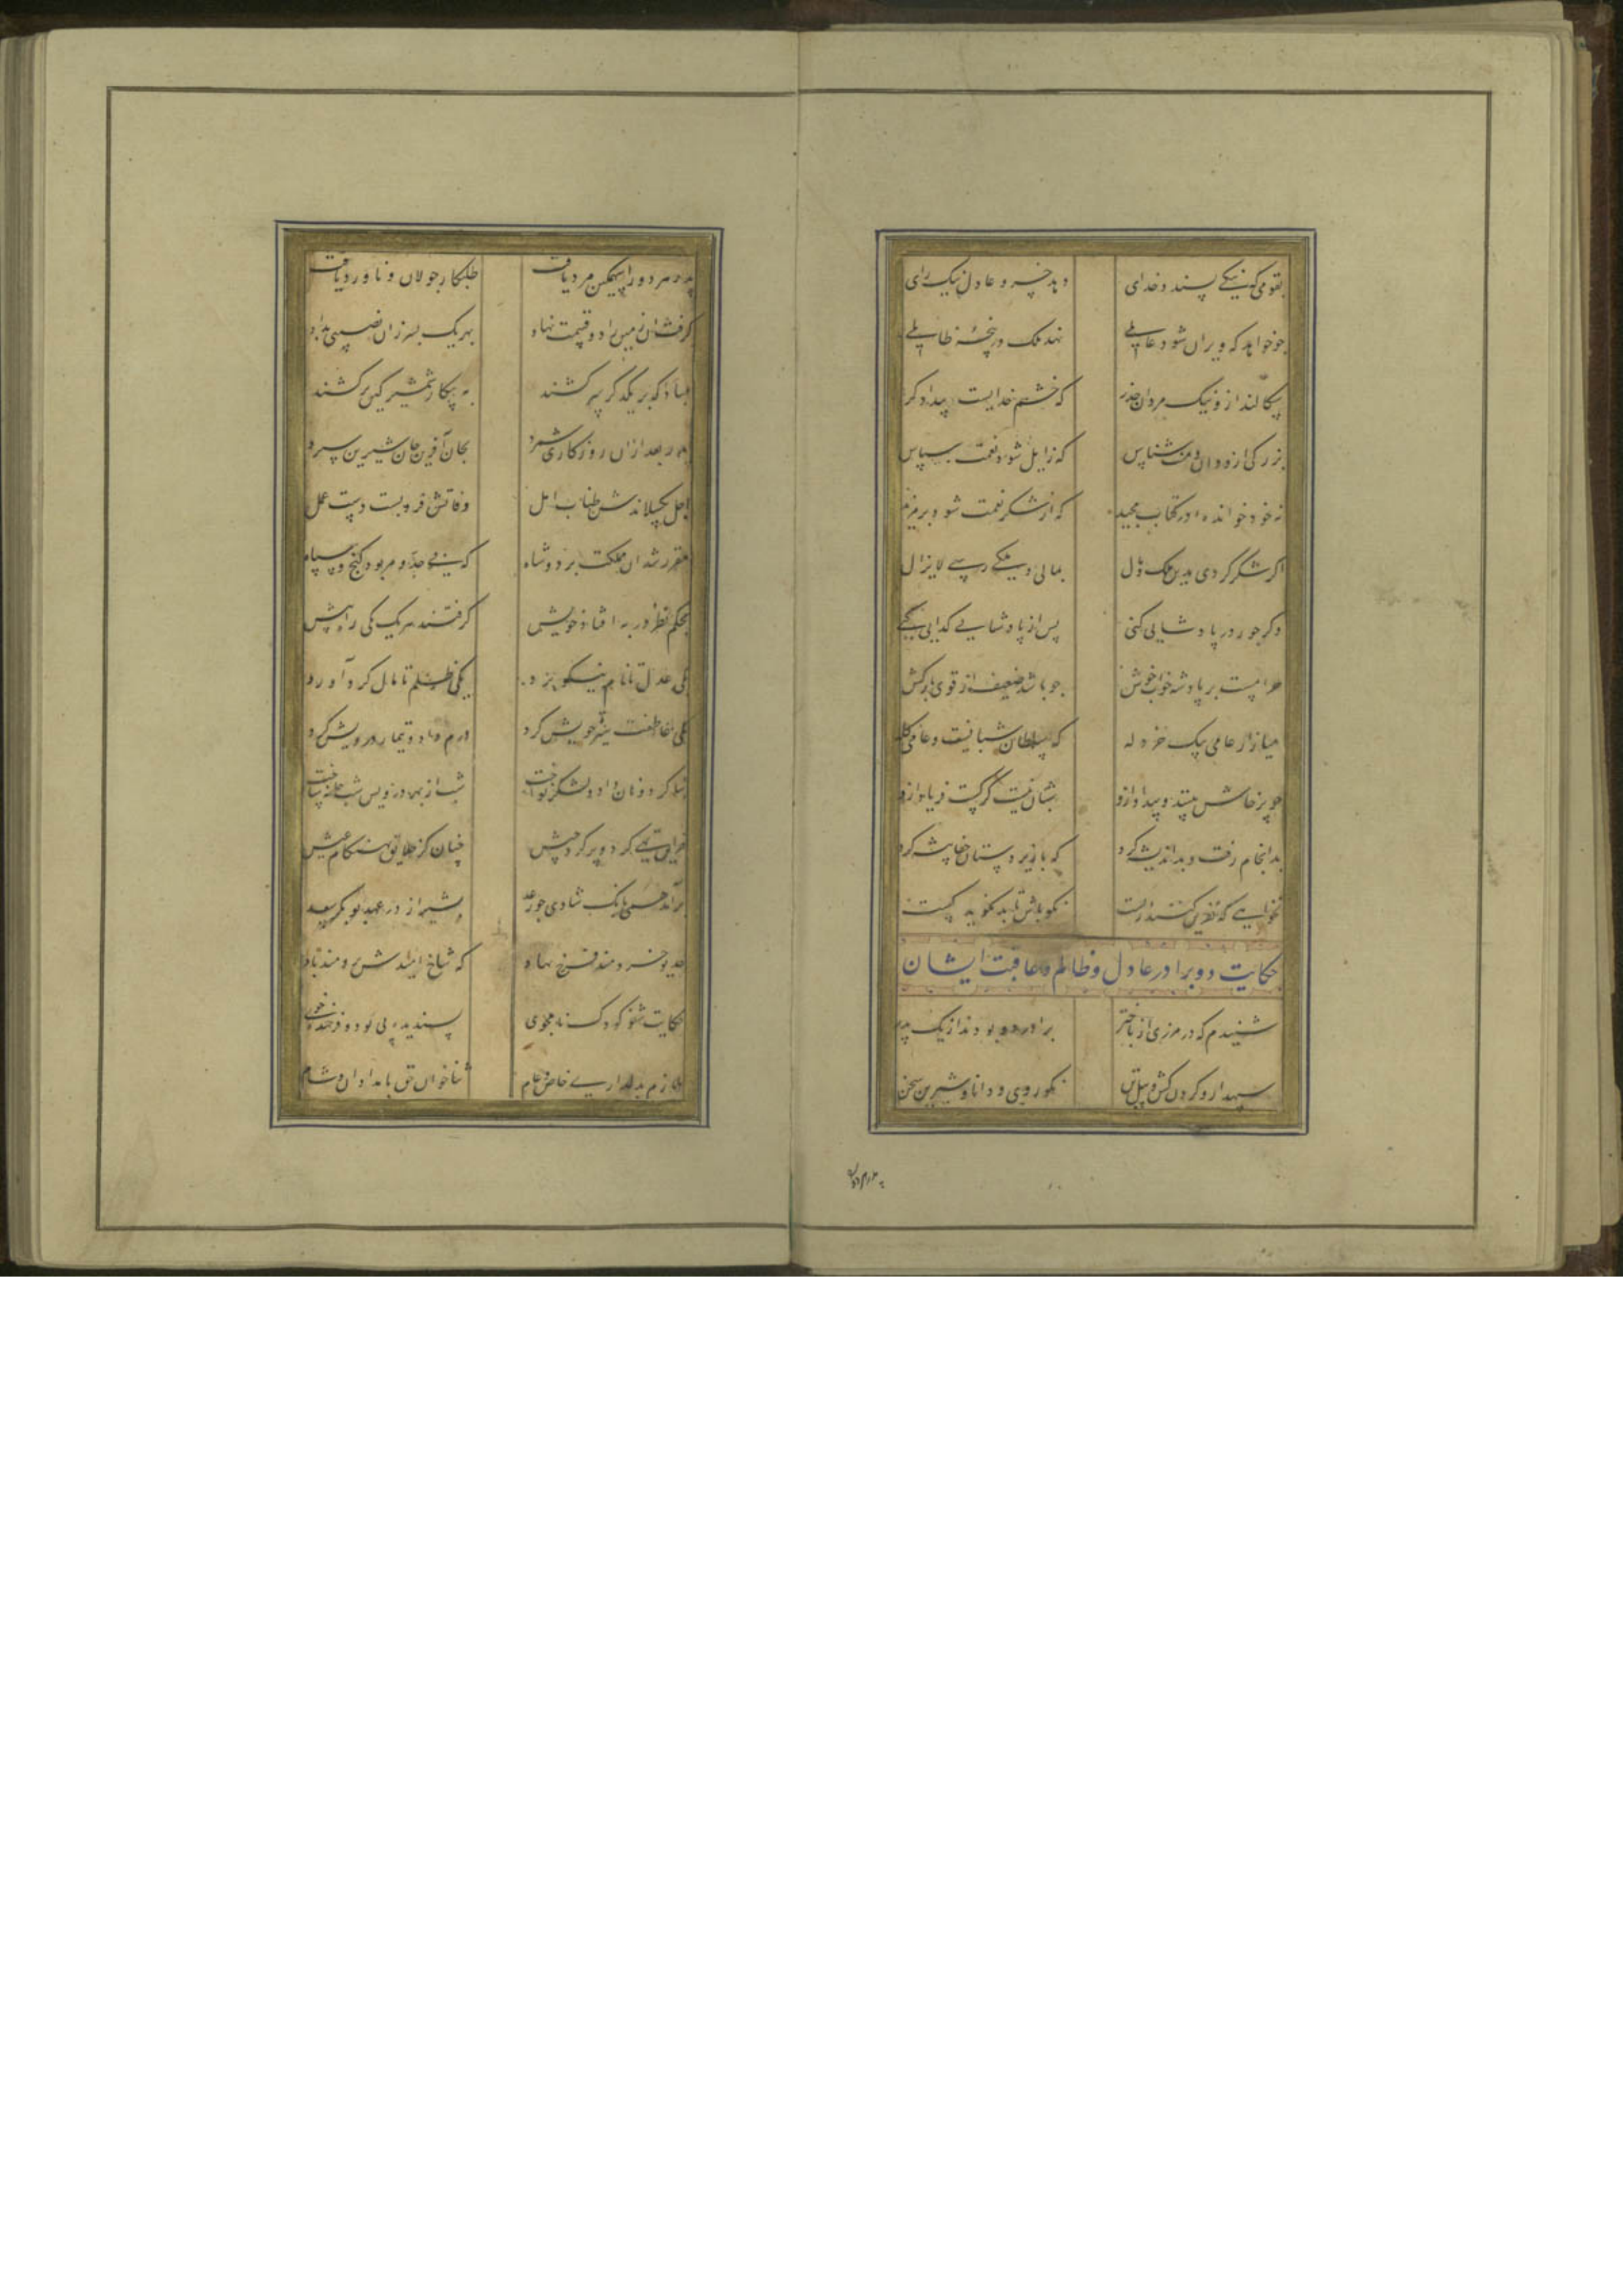 بقومی که نیکی پسندد خدای دهد خسرو عادل نیک رای
چو خواهد که ویران شود عالمی نهد ملک در پنجهٔ ظالمی
سکالند ازو نیک مردان حذر که خشم خدایست بیدادکر
بزرکی ازو دان و منت شناس که زایل شود نعمت ناسپاس
نه خود خوانده‌ای در کتاب مجید که از شکر نعمت شود بر مزید
اکر شکر کردی بدین ملک و مال بمالی و ملکی رسی لایزال
وکر جور در پادشایی کنی پس از پادشایی کدایی کنی
حرامست بر پادشه خواب خوش چو باشد ضعیف از قوی بارکش
میازار عامی بیک خردله که سلطان شبانست و عامی کله
چو پرخاش بینند و بیداد ازو شبان نیست کرکست فریاد ازو
بد انجام رفت و بد اندیشه کرد که با زیردستان جفا پیشه کرد
نخواهی که نفرین کنند از پست نکو باش تا بد نکوید کست
حکایت دو برادر عادل و ظالم و عاقبت ایشان
شنیدم که در مرزی از باختر برادر دو بودند از یک پدر
سپهدار و کردن کش و پیل تن نکو روی و دانا و شیرین سخن
پدر هر دو را سهمکین مرد یافت طلبکار جولان و ناورد یافت
برفت آن زمین را دو قسمت نهاد بهر یک پسر زان نصیبی بداد
مبادا که بر یکدکر سر کشند به پیکار شمشیر کین برکشند
پدر بعد ازان روزکاری شمرد بجان آفرین جان شیرین سپرد
اجل بکسلاندش طناب امل وفاتش فرو بست دست عمل
مقرر شد آن مملکت بر دو شاه که بی حد و مر بود کنج و سپاه
بحکم نظر در به افتاد خویش کرفتند هر یک یکی راه پیش
یکی عدل تا نام نیکو برد یکی ظلم تا مال کرد آورد
یکی عاطفت سیرت خویش کرد درم داد و تیمار درویش کرد
بنا کرد و نان داد و لشکر نواخت شب از بهر درویش شب خانه ساخت
خزاین تهی کرد و پر کرد جیش چنان کز خلایق بهنکام عیش
برآمد همی بانک شادی چو رعد چو شیراز در عهد بوبکر سعد
خدیو خردمند فرخ نهاد که شاخ امیدش برومند باد
حکایت شنو کودک نامجوی پسندیده پی بود و فرخنده خوی
ملازم بدلداری خاص و عام ثنا خوان حق بامدادان و شام
پدر هر دو را